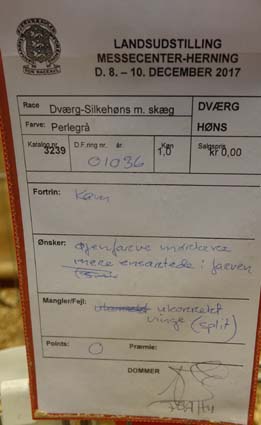 LANDSUDSTILLING
MESSECENTER-HERNING
D. 8. – 10. DECEMBER 2017
Race Dværg-Silkehøns m. skæg
DVÆRG
HØNS
Farve: Perlegrå
Katalog nr. D.F.ring nr. år. Køn Salgspris
3239 01036 1,0 kr 0,00
Fortrin:
Ønsker: øjenfarve
mere ensartede i farven
Mangler/Fejl: ukorrekt
vinge (split)
Points: 0 Præmie:
DOMMER